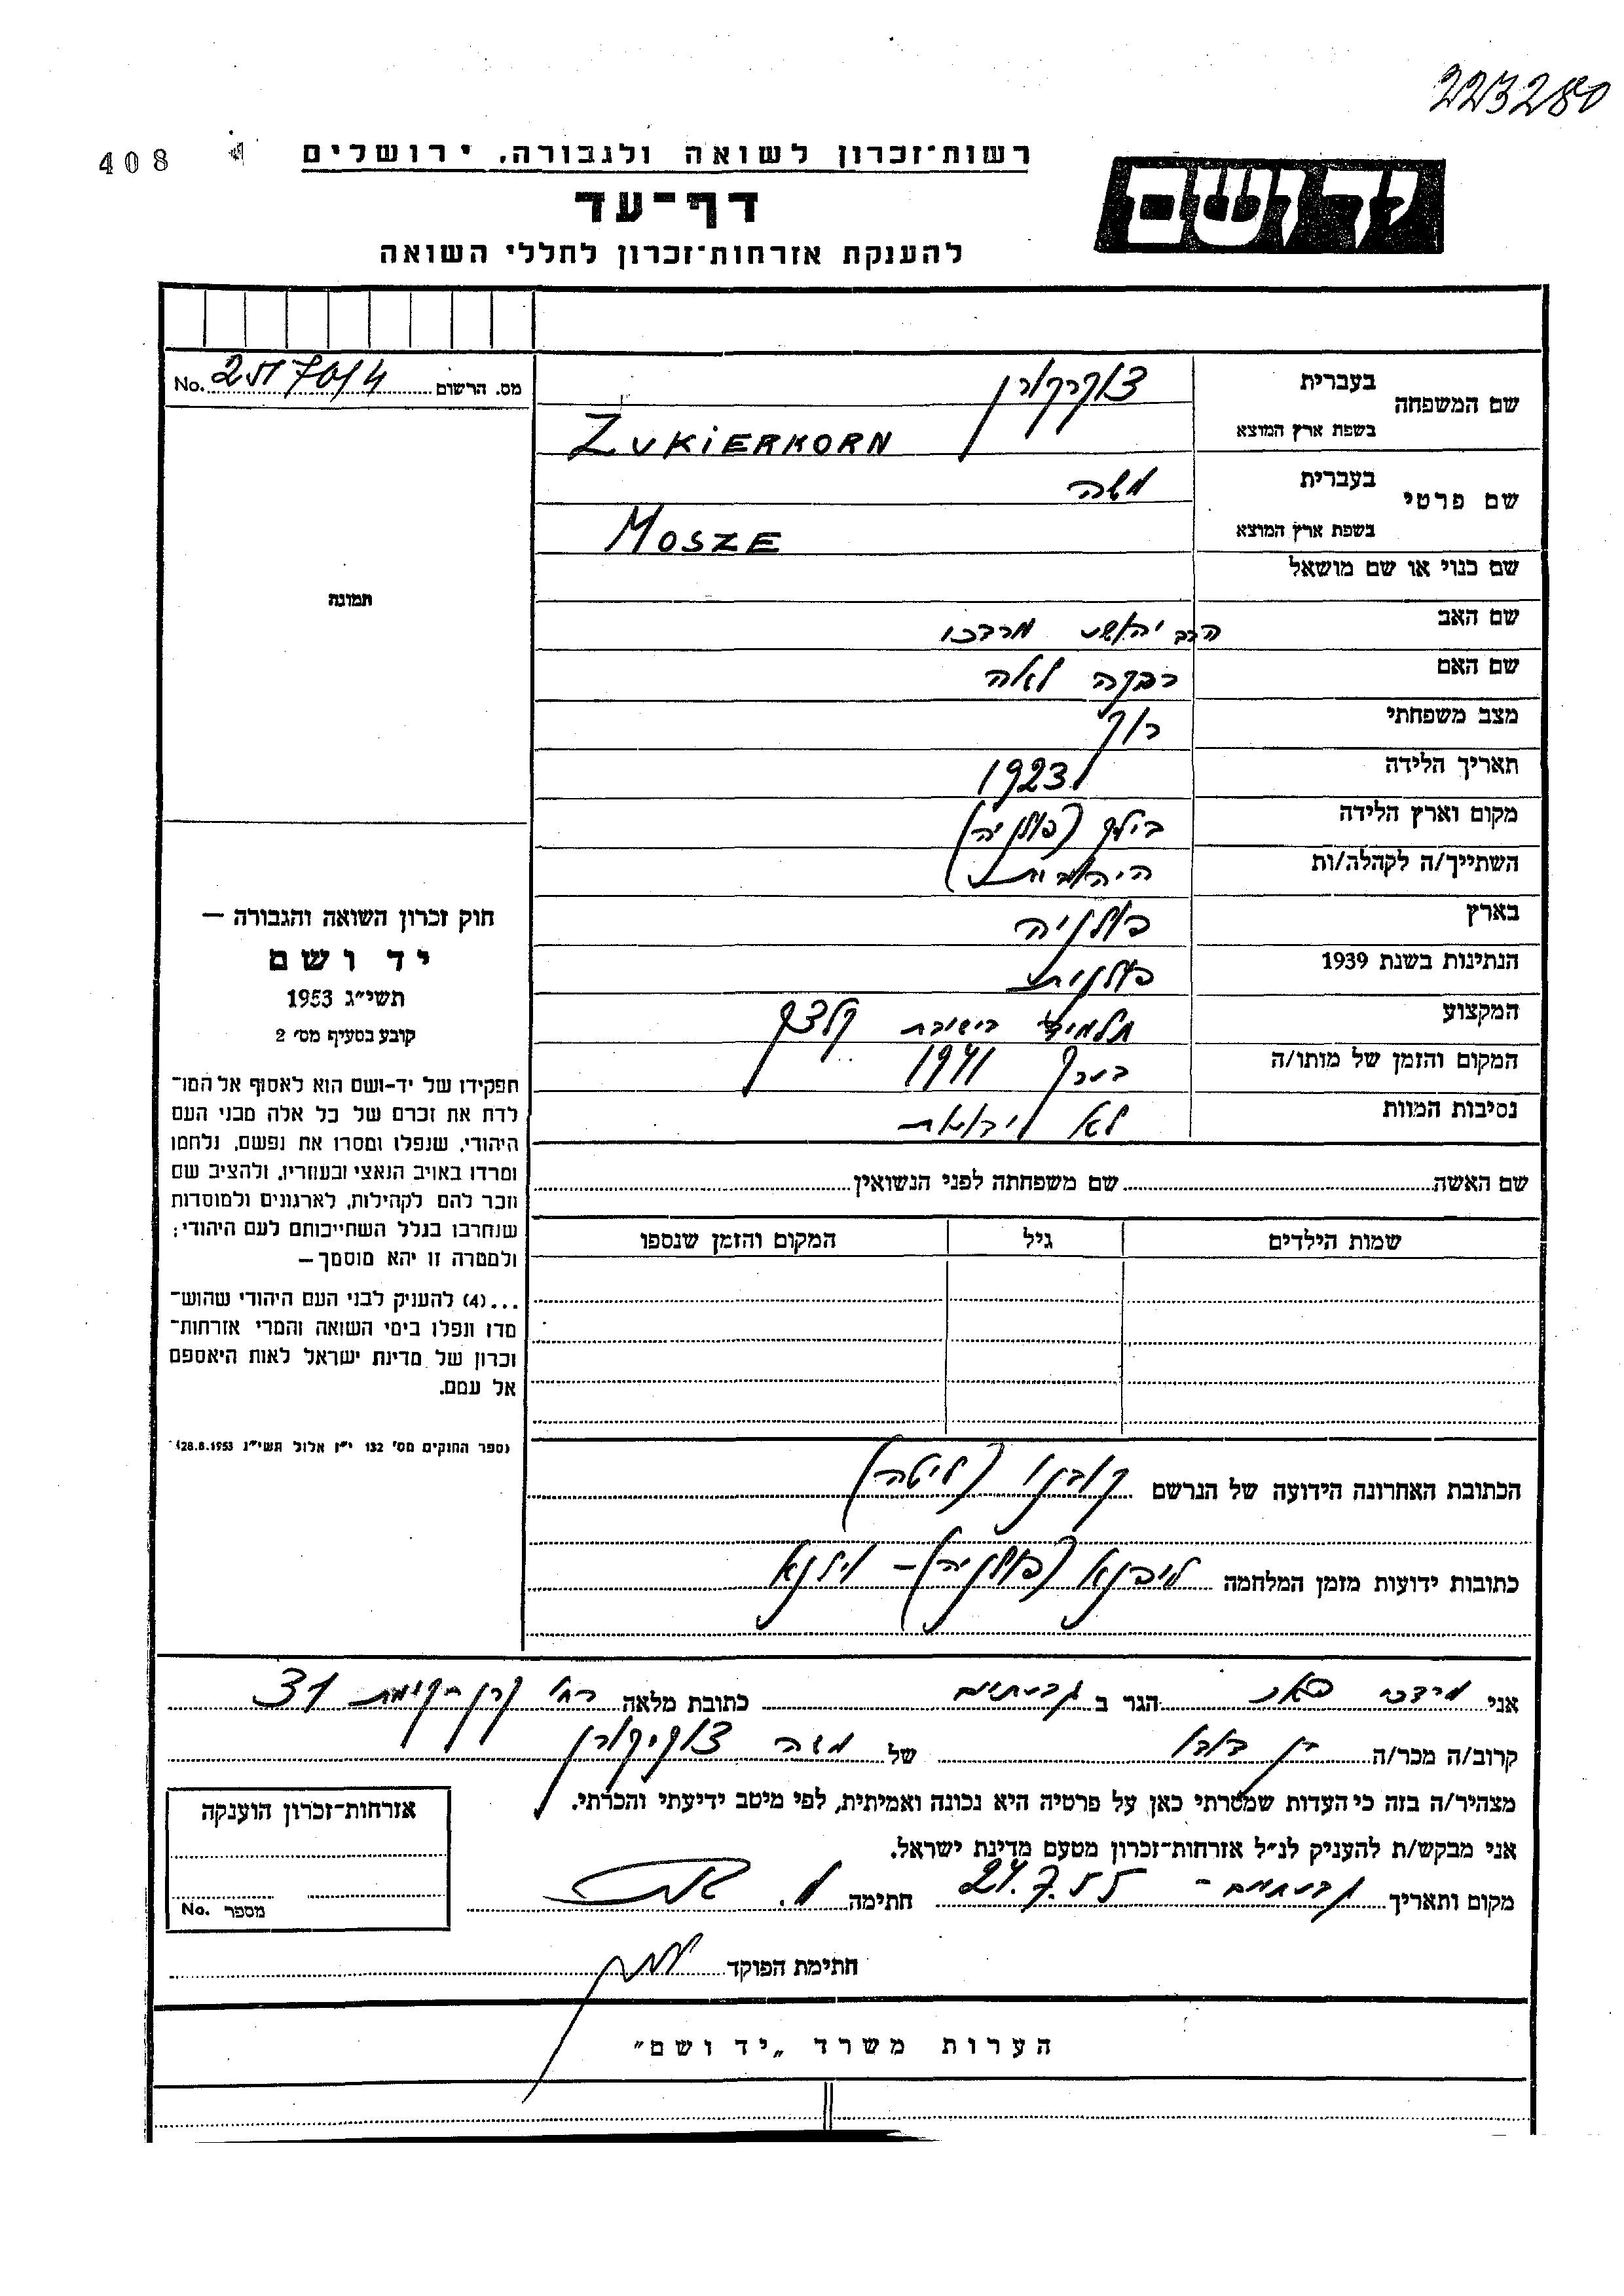 223280
408
רשות־זכרון לשואה ולגבורה, ירושלים
יד ושם
דף־עד
להענקת אזרחות־זכרון לחללי השואה
שם המשפחה
בעברית צוקרקורן
בשפת ארץ המוצא ZUKIERKORN
מס. הרשום No.
שם פרטי
בעברית משה
בשפת ארץ המוצא MOSZE
שם כנוי או שם מושאל
תמונה
שם האב הרב יהושע מרדכי
שם האם רבקה לאה
מצב משפחתי רוק
תאריך הלידה 1923
מקום וארץ הלידה (פולניה)
השתייך/ה לקהלה/ות
בארץ פולניה
הנתינות בשנת 1939 פולנית
המקצוע תלמיד בישיבת קלצק
המקום והזמן של מותו/ה 1941
נסיבות המוות לא ידועות
שם האשה שם משפחתה לפני הנשואין
שמות הילדים גיל המקום והזמן שנספו
חוק זכרון השואה והגבורה —
יד ושם
תשי״ג 1953
קובע בסעיף מס׳ 2
תפקידו של יד-ושם הוא לאסוף אל המו־
לדת את זכרם של כל אלה מבני העם
היהודי, שנפלו ומסרו את נפשם, נלחמו
ומרדו באויב הנאצי ובעוזריו, ולהציב שם
וזכר להם לקהילות, לארגונים ולמוסדות
שנחרבו בגלל השתייכותם לעם היהודי;
ולמטרה זו יהא מוסמך—
...(4) להעניק לבני העם היהודי שהוש־
מדו ונפלו בימי השואה והמרי אזרחות־
זכרון של מדינת ישראל לאות היאספם
אל עמם.
(ספר החוקים מס׳ 132 י״ז אלול תשי״ג 28.8.1953)
הכתובת האחרונה הידועה של הנרשם קובנו (ליטה)
כתובות ידועות מזמן המלחמה (פולניה) – וילנא
אני מרדכי הגר ב גבעתיים כתובת מלאה רח׳ קרן-קימת 31
קרוב/ה מכר/ה בן דודו של משה צוקירקורן
מצהיר/ה בזה כי העדות שמסרתי כאן על פרטיה היא נכונה ואמיתית, לפי מיטב ידיעתי והכרתי.
אני מבקש/ת להעניק לנ״ל אזרחות־זכרון מטעם מדינת ישראל.
מקום ותאריך גבעתיים - 24.7.55 חתימה
חתימת הפוקד
אזרחות־זכרון הוענקה
מספר No.
הערות משרד „יד ושם״